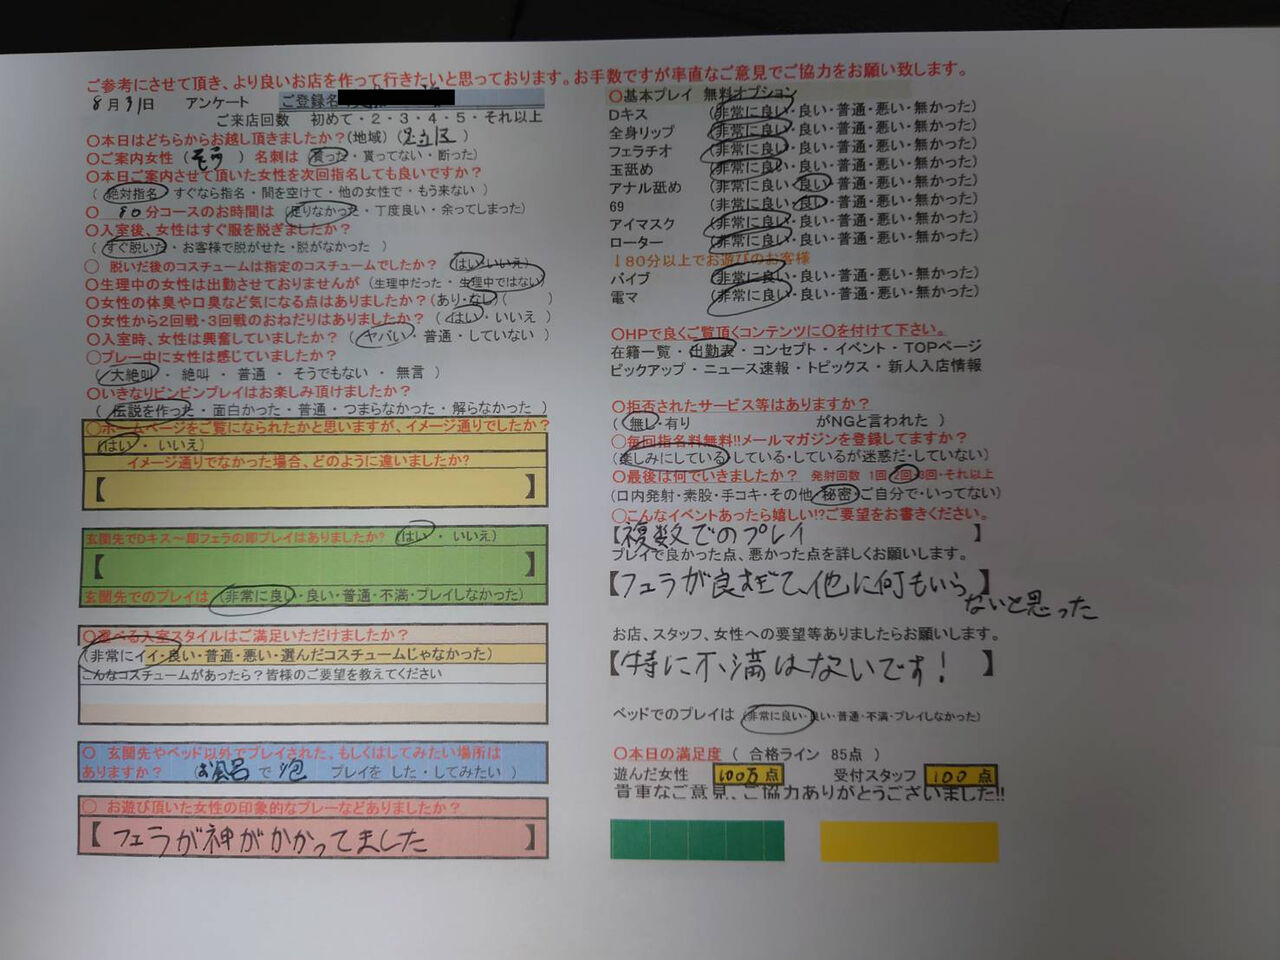 ご参考にさせて頂き、より良いお店を作って行きたいと思っております。お手数ですが率直なご意見でご協力をお願い致します。
8月31日 アンケート ご登録名
ご来店回数 初めて・2・3・4・5・それ以上
〇本日はどちらからお越し頂きましたか?(地域)(足立区)
〇ご案内女性( )名刺は(貰った・貰ってない・断った)
〇本日ご案内させて頂いた女性を次回指名しても良いですか?
(絶対指名・すぐなら指名・間を空けて・他の女性で・もう来ない)
〇 80分コースのお時間は(足りなかった・丁度良い・余ってしまった)
〇入室後、女性はすぐ服を脱ぎましたか?
(すぐ脱いだ・お客様で脱がせた・脱がなかった)
〇 脱いだ後のコスチュームは指定のコスチュームでしたか?(はい・いいえ)
〇生理中の女性は出勤させておりませんが(生理中だった・生理中ではない)
〇女性の体臭や口臭など気になる点はありましたか?(あり・なし)( )
〇女性から2回戦・3回戦のおねだりはありましたか?(はい・いいえ)
〇入室時、女性は興奮していましたか?(ヤバい・普通・していない)
〇プレー中に女性は感じていましたか?
(大絶叫・絶叫・普通・そうでもない・無言)
〇いきなりビンビンプレイはお楽しみ頂けましたか?
(伝説を作った・面白かった・普通・つまらなかった・解らなかった)
〇ホームページをご覧になられたかと思いますが、イメージ通りでしたか?
(はい・いいえ)
イメージ通りでなかった場合、どのように違いましたか?
【 】
玄関先でDキス～即フェラの即プレイはありましたか?(はい・いいえ)
【 】
玄関先でのプレイは(非常に良い・良い・普通・不満・プレイしなかった)
〇選べる入室スタイルはご満足いただけましたか?
(非常にイイ・良い・普通・悪い・選んだコスチュームじゃなかった)
こんなコスチュームがあったら?皆様のご要望を教えてください
〇 玄関先やベッド以外でプレイされた、もしくはしてみたい場所は
ありますか? (お風呂で泡 プレイをした・してみたい)
〇 お遊び頂いた女性の印象的なプレーなどありましたか?
【フェラが神がかかってました】
〇基本プレイ 無料オプション
Dキス (非常に良い・良い・普通・悪い・無かった)
全身リップ (非常に良い・良い・普通・悪い・無かった)
フェラチオ (非常に良い・良い・普通・悪い・無かった)
玉舐め (非常に良い・良い・普通・悪い・無かった)
アナル舐め (非常に良い・良い・普通・悪い・無かった)
69 (非常に良い・良い・普通・悪い・無かった)
アイマスク (非常に良い・良い・普通・悪い・無かった)
ローター (非常に良い・良い・普通・悪い・無かった)
↓80分以上でお遊びのお客様
バイブ (非常に良い・良い・普通・悪い・無かった)
電マ (非常に良い・良い・普通・悪い・無かった)
〇HPで良くご覧頂くコンテンツに〇を付けて下さい。
在籍一覧・出勤表・コンセプト・イベント・TOPページ
ピックアップ・ニュース速報・トピックス・新人入店情報
〇拒否されたサービス等はありますか?
(無し・有り がNGと言われた)
〇毎回指名料無料!!メールマガジンを登録してますか?
(楽しみにしている・している・しているが迷惑だ・していない)
〇最後は何でいきましたか? 発射回数 1回・2回・3回・それ以上
(口内発射・素股・手コキ・その他・秘密・ご自分で・いってない)
〇こんなイベントあったら嬉しい!?ご要望をお書きください。
【複数でのプレイ】
プレイで良かった点、悪かった点を詳しくお願いします。
【フェラが良すぎて、他に何もいら】
ないと思った
お店、スタッフ、女性への要望等ありましたらお願いします。
【特に不満はないです!】
ベッドでのプレイは(非常に良い・良い・普通・不満・プレイしなかった)
〇本日の満足度(合格ライン 85点)
遊んだ女性 100万点 受付スタッフ 100点
貴重なご意見、ご協力ありがとうございました!!